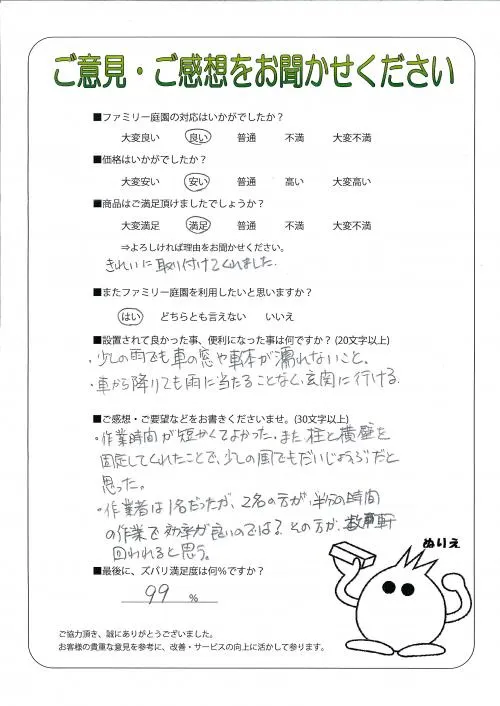 ご意見・ご感想をお聞かせください
■ファミリー庭園の対応はいかがでしたか？
大変良い 良い 普通 不満 大変不満
■価格はいかがでしたか？
大変安い 安い 普通 高い 大変高い
■商品はご満足頂けましたでしょうか？
大変満足 満足 普通 不満 大変不満
⇒よろしければ理由をお聞かせください。
きれいに取り付けてくれました.
■またファミリー庭園を利用したいと思いますか？
はい どちらとも言えない いいえ
■設置されて良かった事、便利になった事は何ですか？(20文字以上)
・少しの雨でも車の窓や車体が濡れないこと。
・車から降りても雨に当たることなく、玄関に行ける.
■ご感想・ご要望などをお書きくださいませ。(30文字以上)
・作業時間が短かくてよかった.また 柱と横壁を
固定してくれたことで、少しの風でもだいじょうぶだと
思った。
・作業者は1名だったが、2名の方が、半分の時間
の作業で効率が良いのでは？その方が、数軒
回われると思う。
■最後に、ズバリ満足度は何％ですか？
99 ％
ぬりえ
ご協力頂き、誠にありがとうございました。
お客様の貴重な意見を参考に、改善・サービスの向上に活かして参ります。